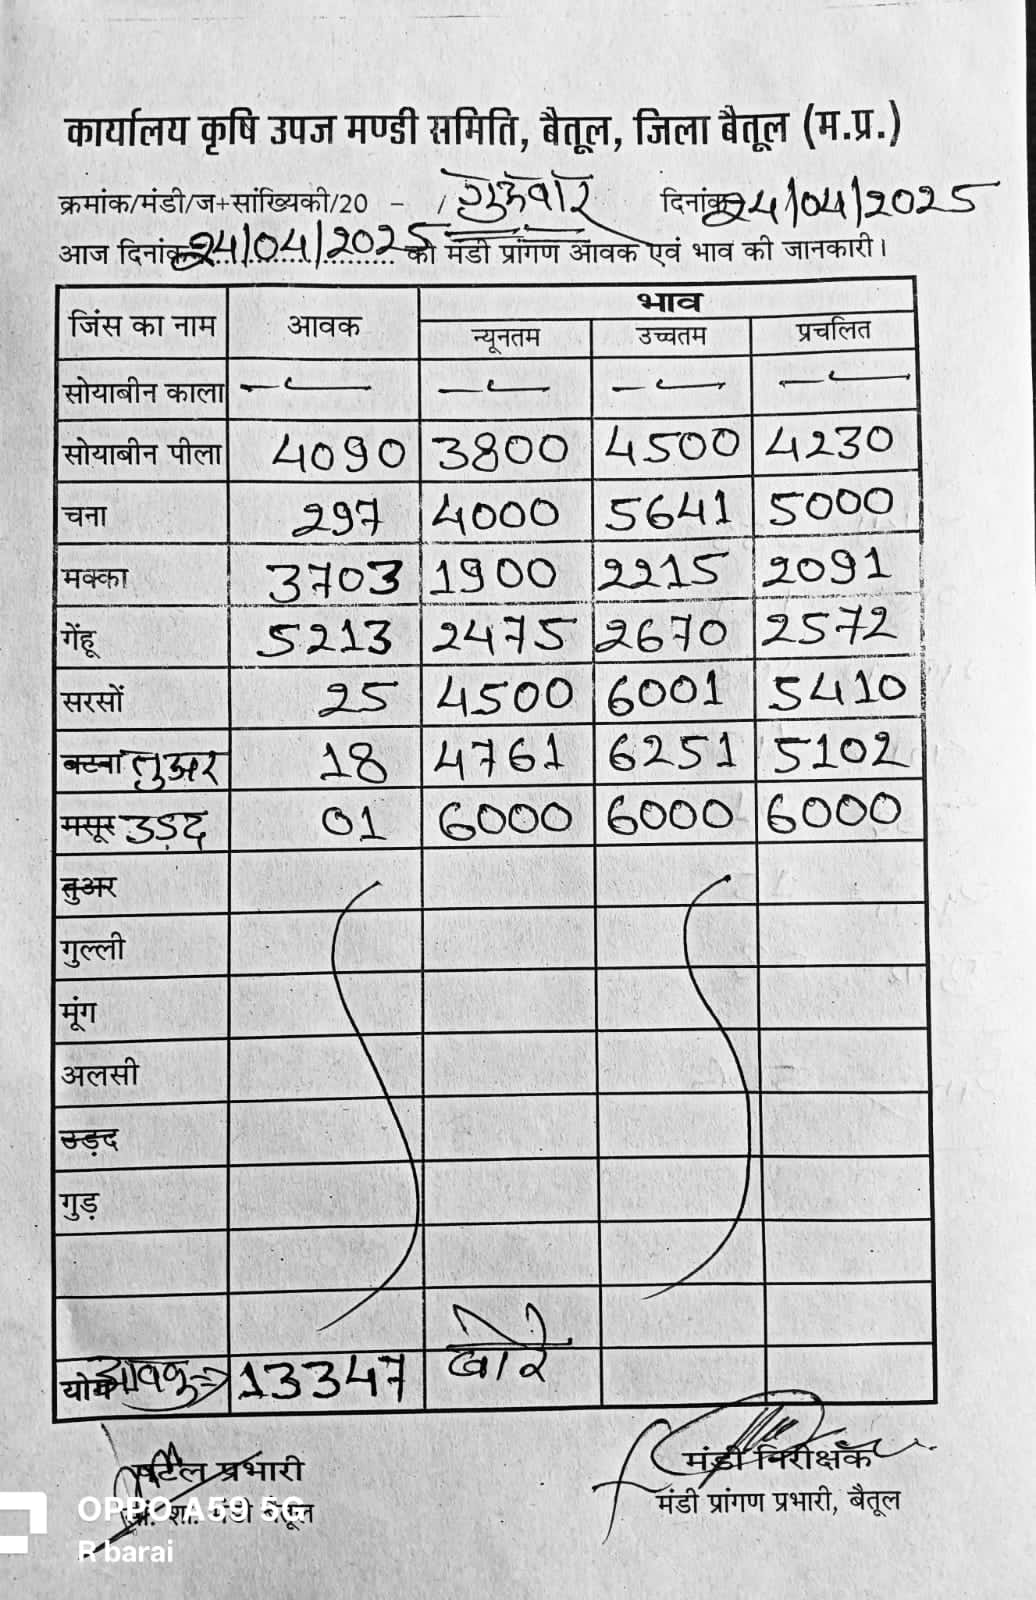 कार्यालय कृषि उपज मण्डी समिति, बैतूल, जिला बैतूल (म.प्र.)
क्रमांक/मंडी/ज+सांख्यिकी/20 - / गुरूवार दिनांक 24/04/2025
आज दिनांक 24/04/2025 को मंडी प्रांगण आवक एवं भाव की जानकारी।
जिंस का नाम आवक भाव
न्यूनतम उच्चतम प्रचलित
सोयाबीन काला — — — —
सोयाबीन पीला 4090 3800 4500 4230
चना 297 4000 5641 5000
मक्का 3703 1900 2215 2091
गेंहू 5213 2475 2670 2572
सरसों 25 4500 6001 5410
बटना तुअर 18 4761 6251 5102
मसूर उड़द 01 6000 6000 6000
तुअर
गुल्ली
मूंग
अलसी
उड़द
गुड़
योग आवक 13347 बोरे
प्रभारी मंडी निरीक्षक
मंडी प्रांगण प्रभारी, बैतूल
OPPO A59 5G
R barai